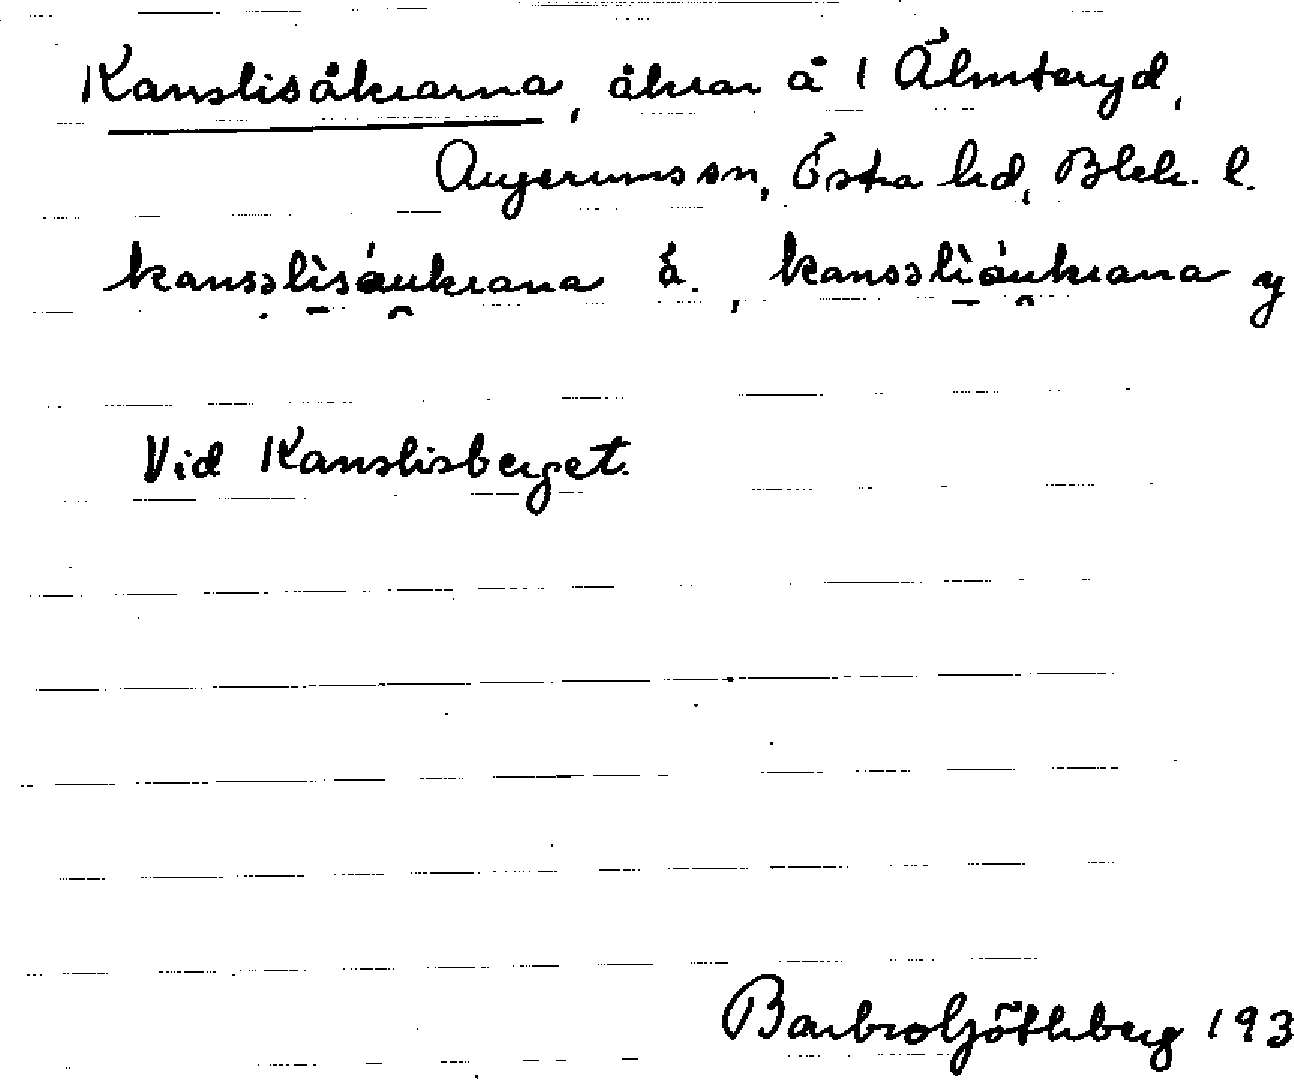 Kanslisåkrarna, åkrar å 1 Älmteryd,
Augerums sn, Östra hd, Blek. l.
kansslisåukrana ä., kanssliåukrana y
Vid Kanslisberget.
Barbro Göthberg 193